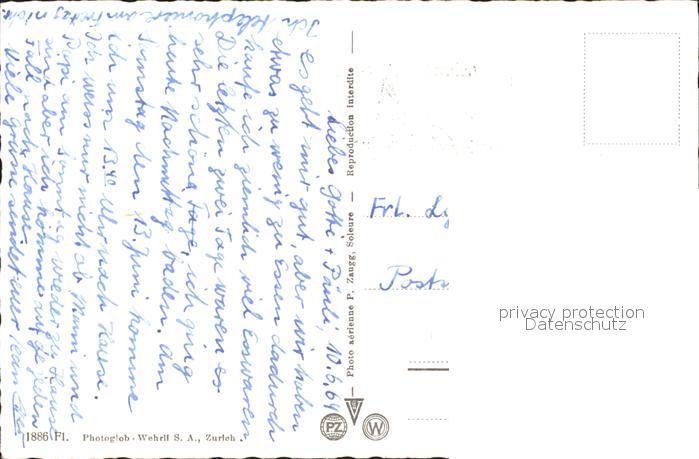 Liebes Gotti + Päuli, 10.6.64
es geht mir gut, aber wir haben
etwas zu wenig zu Essen dadurch
kaufe ich ziemlich viel Esswaren
Die letzten zwei Tage waren es
sehr schöne Tage, ich ging
heute Nachmittag baden. Am
Samstag den 13. Juni komme
ich um 13.40 Uhr nach Hause.
Ich weiss nur nicht ob Mammi und
Papi am Sonntag wieder zu Hause
sind aber ich komme auf jeden
Fall nach Hause.
Viele Grüsse sendet euer
Ich telephoniere am Freitag nicht.
Reproduction interdite
Photo aérienne P. Zaugg, Soleure
Frl.
1886 Fl. Photoglob-Wehrli S. A., Zurich.
PZ
W
privacy protection
Datenschutz